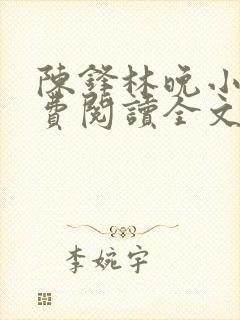 陳鋒林晚小
費閱讀全文
李婉宇